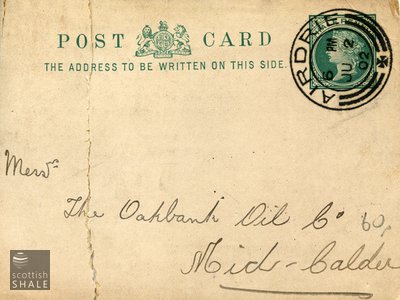 POST CARD
THE ADDRESS TO BE WRITTEN ON THIS SIDE.
AIRDRIE
6 PM
JU 2
02
Messrs
The Oakbank Oil Co 60
Mid-Calder
scottish
SHALE